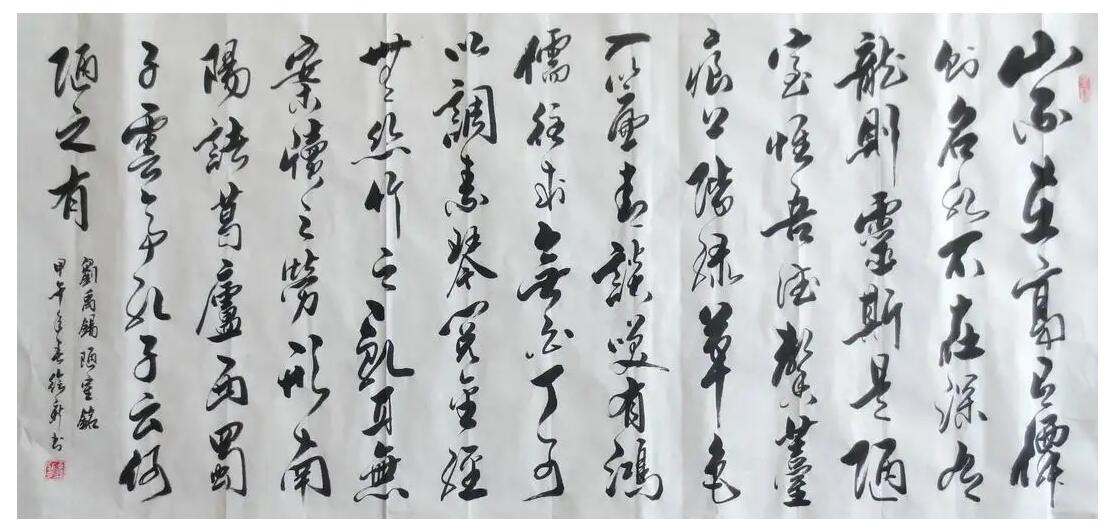 山不在高有僊
則名水不在深有
龍則靈斯是陋
室惟吾德馨薹
痕上階緑草色
入簾青談笑有鴻
儒往来無白丁可
以調素琴閲金經
無絲竹之亂耳無
案牘之勞形南
陽諸葛廬西蜀
子雲亭孔子云何
陋之有
劉禹錫陋室銘
甲午年春徐新书